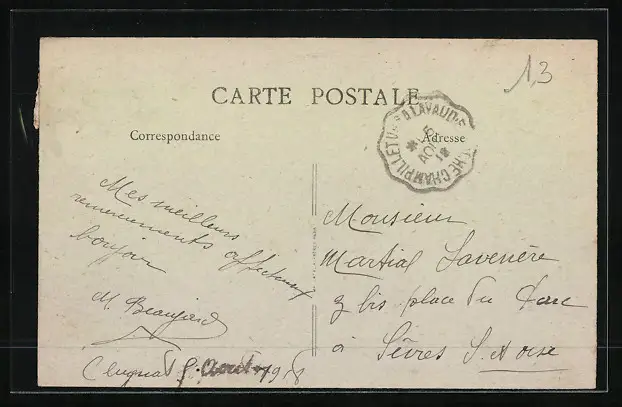 13
CARTE POSTALE
Correspondance
Adresse
CHAMPILLET À LAVAUD
AOUT
18
Mes meilleurs
remerciements affectueux
bonjour
M. Beaujard
Clugnat 5 Août 1918
Monsieur
Martial Laverière
3 bis place du Parc
à Sèvres S. et Oise